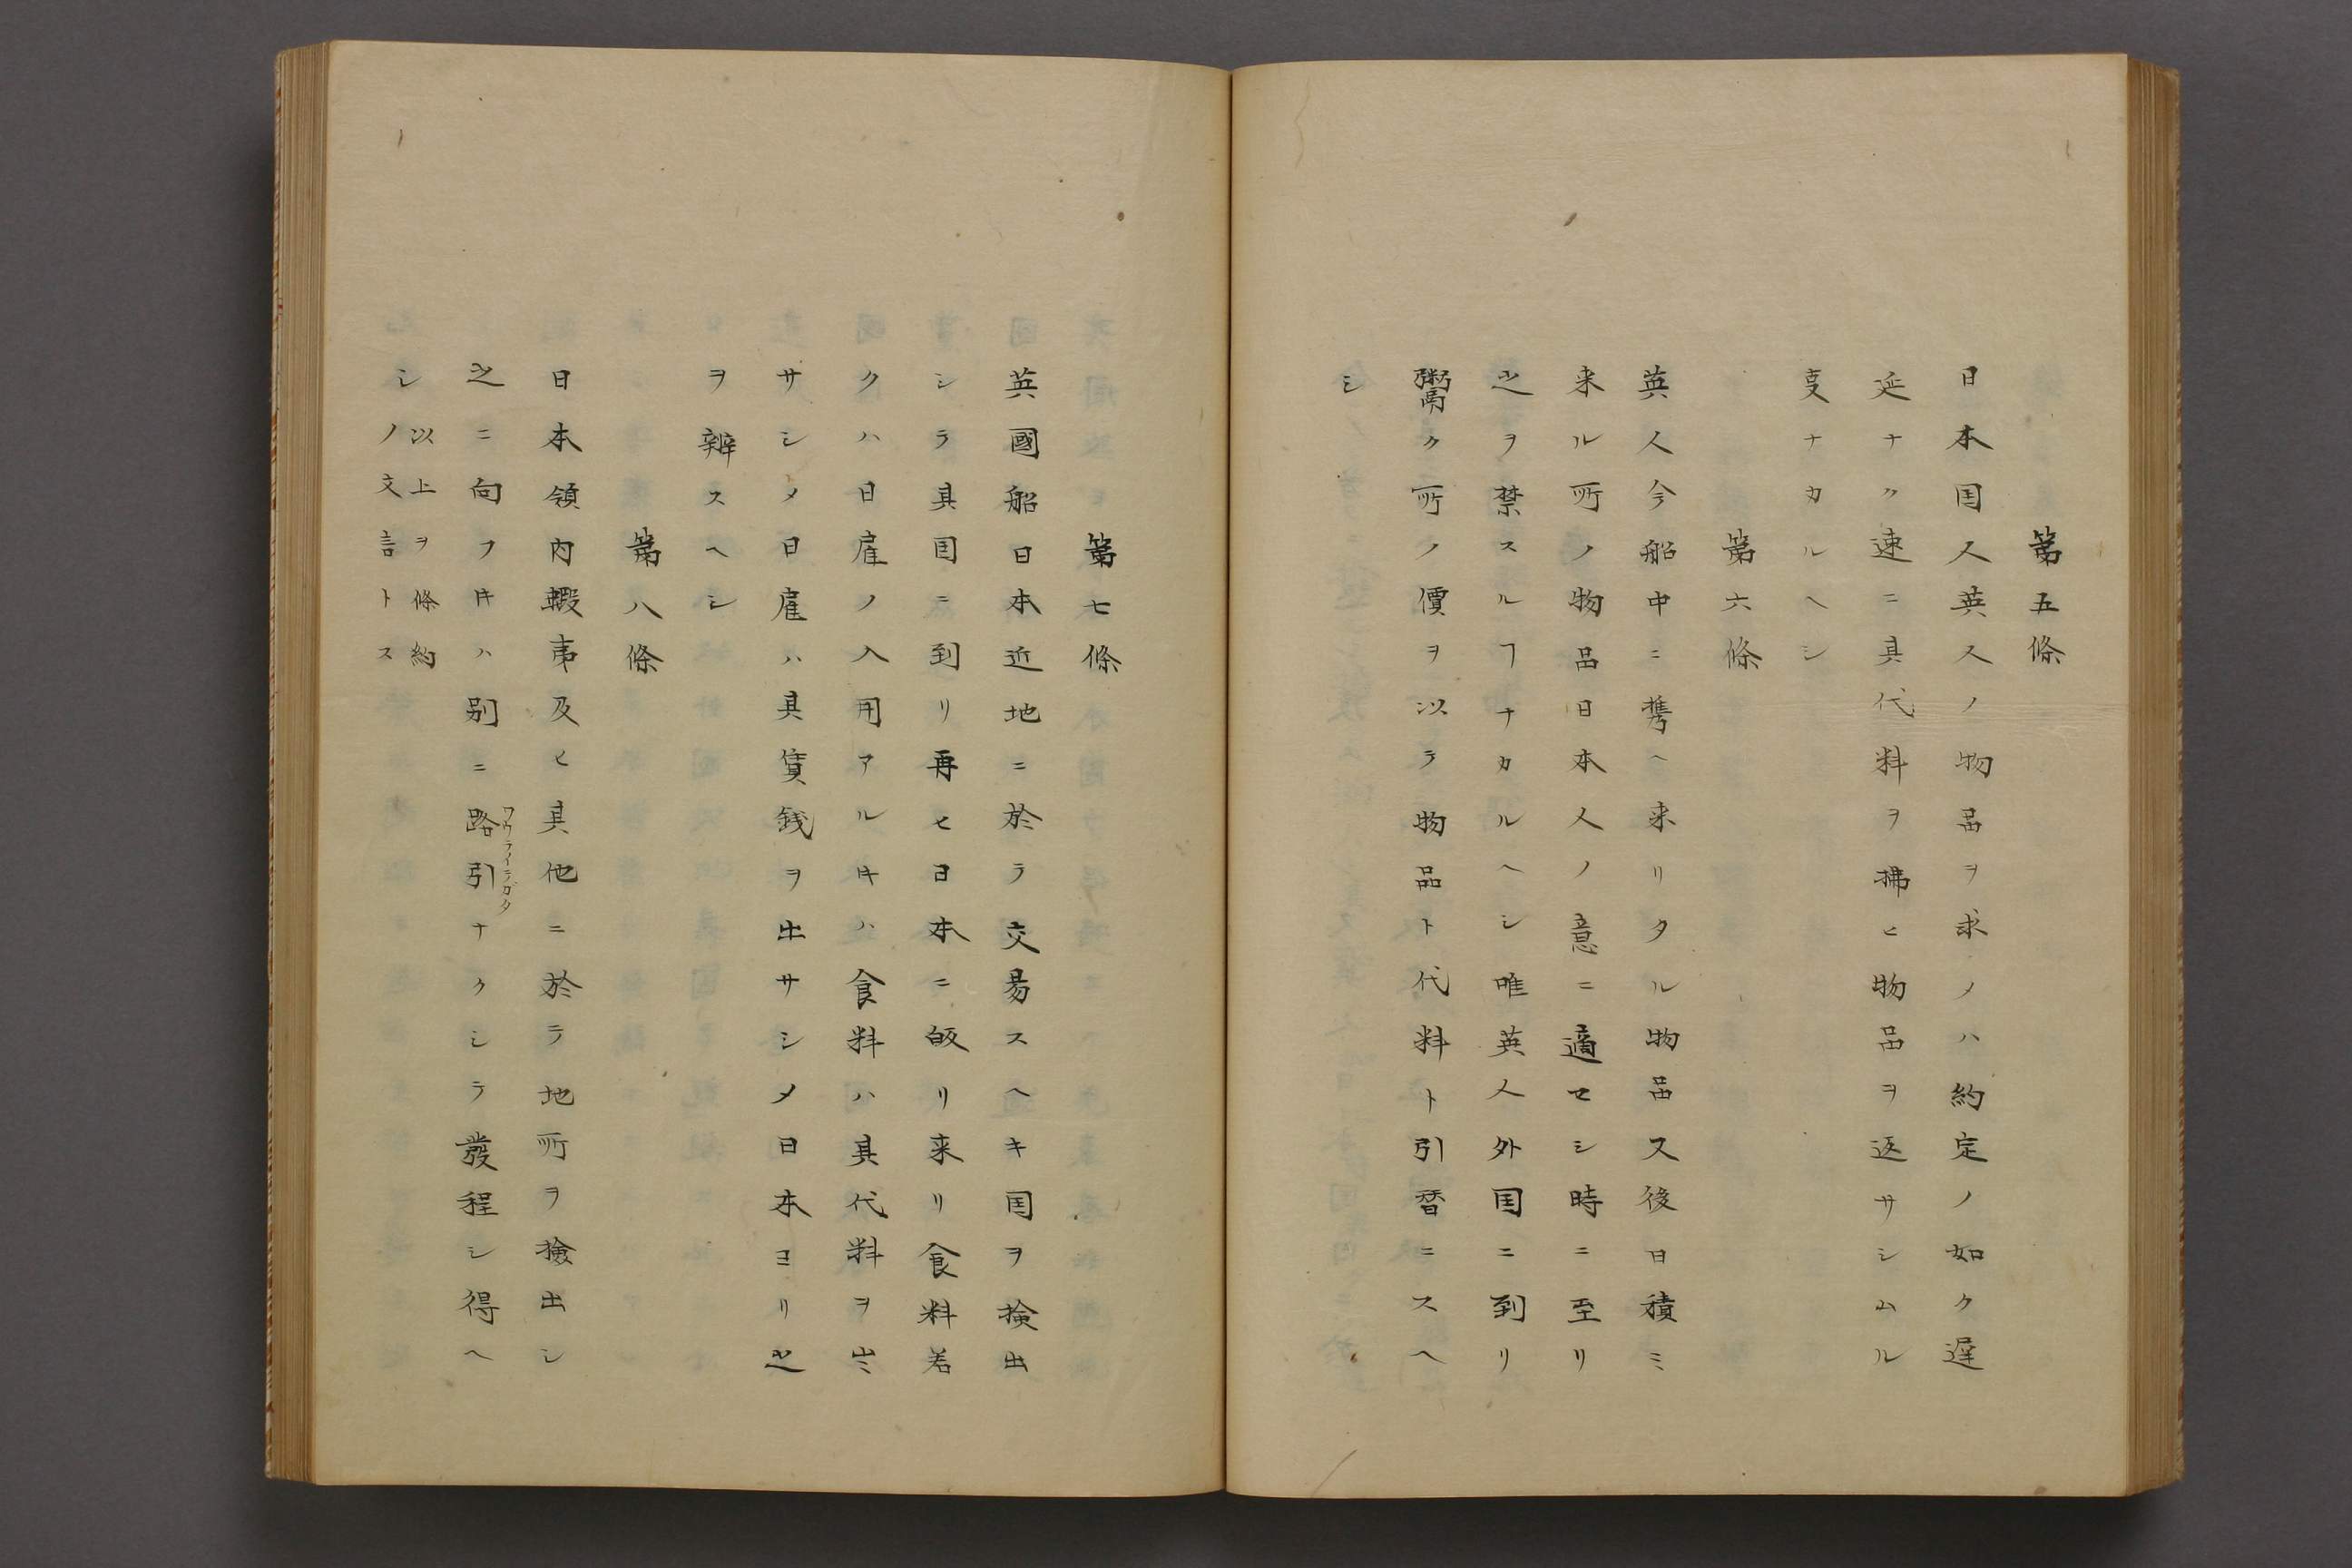 第五條
日本国人英人ノ物品ヲ求メハ約定ノ如ク遅
延ナク速ニ其代料ヲ拂ヒ物品ヲ返サシムル
叓ナカルヘシ
第六條
英人今船中ニ携ヘ来リタル物品又後日積ミ
来ル所ノ物品日本人ノ意ニ適セシ時ニ至リ
之ヲ禁スルヿナカルヘシ唯英人外国ニ到リ
鬻ク所ノ價ヲ以テ物品ト代料ト引替ニスヘ
シ
第七條
英國船日本近地ニ於テ交易スヘキ国ヲ撿出
シテ其国ニ到リ再ヒ日本ニ皈リ来リ食料若
クハ日雇ノ入用アルキハ食料ハ其代料ヲ出
サシメ日雇ハ其賃銭ヲ出サシメ日本ヨリ之
ヲ辨スヘシ
第八條
日本領内蝦夷及ヒ其他ニ於テ地所ヲ撿出シ
之ニ向フキハ別ニ路引ナクシテ發程シ得ヘ
ワウライテガタ
シ
以上ヲ條約
ノ文言トス